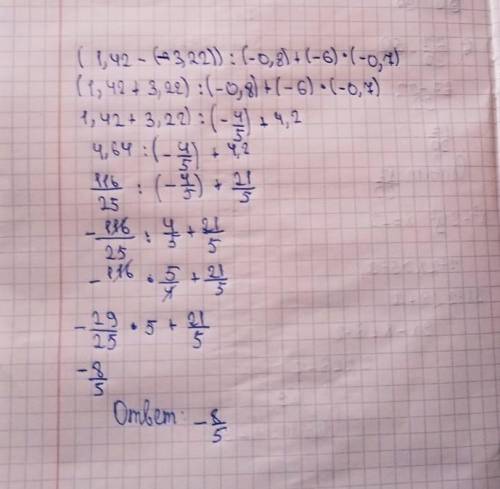 (1,42 - (-3,22)) : (-0,8) + (-6) · (-0,7)
(1,42 + 3,22) : (-0,8) + (-6) · (-0,7)
1,42 + 3,22) : (-4/5) + 4,2
4,64 : (-4/5) + 4,2
116/25 : (-4/5) + 21/5
-116/25 : 4/5 + 21/5
-116 · 5/4 + 21/5
-29/25 · 5 + 21/5
-8/5
Ответ: -8/5